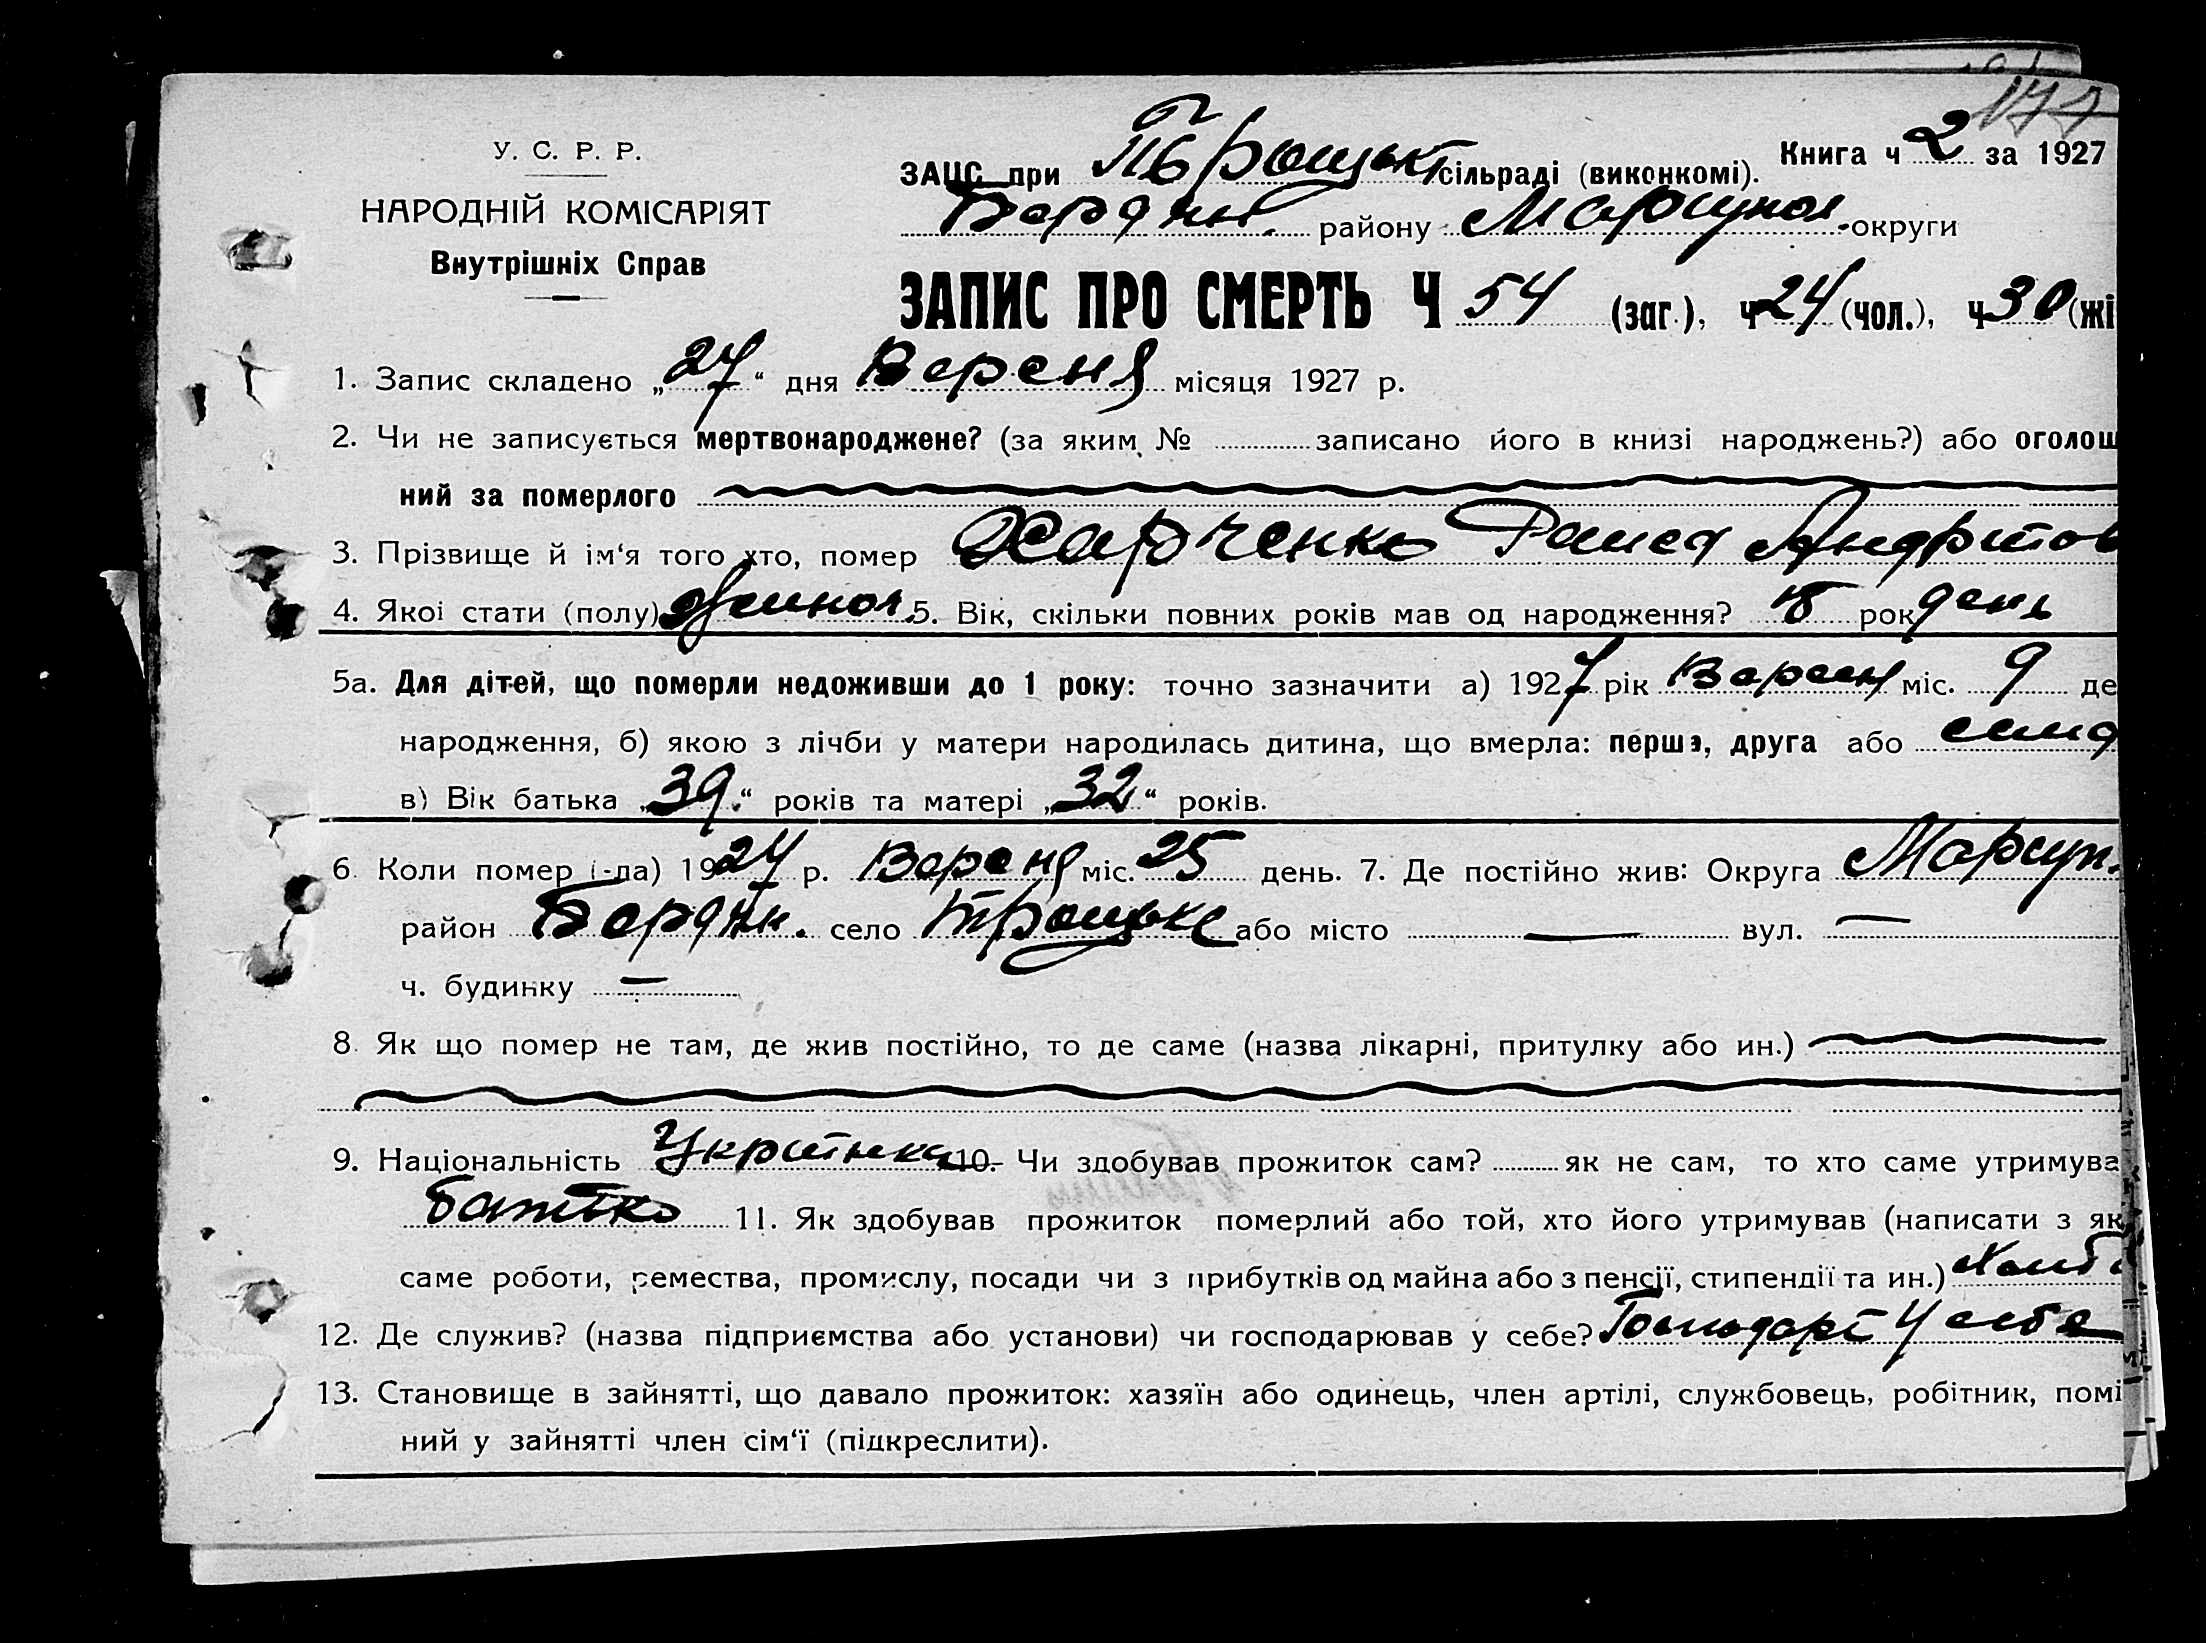 177
У. С. Р. Р.
НАРОДНІЙ КОМІСАРІЯТ
Внутрішніх Справ
Книга ч 2 за 1927
ЗАЦС при Троцькій сільраді (виконкомі).
Бердян. району Маріупол. округи
ЗАПИС ПРО СМЕРТЬ Ч 54 (заг.), ч 24 (чол.), ч 30 (жі
1. Запис складено „27“ дня Вересня місяця 1927 р.
2. Чи не записується мертвонароджене? (за яким № записано його в книзі народжень?) або оголош
ний за померлого
3. Прізвище й ім‘я того хто, помер Харченко Раиса Андріїов
4. Якої стати (полу) Жиноч. 5. Вік, скільки повних років мав од народження? рок день
5а. Для дітей, що померли недоживши до 1 року: точно зазначити а) 1927 рік Вересня міс. 9 де
народження, б) якою з лічби у матери народилась дитина, що вмерла: перша, друга або сема
в) Вік батька „39“ років та матері „32“ років.
6. Коли помер (-ла) 1927 р. Вересня міс. 25 день. 7. Де постійно жив: Округа Маріуп.
район Бердян. село Троцьке або місто — вул. —
ч. будинку —
8. Як що помер не там, де жив постійно, то де саме (назва лікарні, притулку або ин.)
9. Національність Українка 10. Чи здобував прожиток сам? як не сам, то хто саме утримува
батько 11. Як здобував прожиток померлий або той, хто його утримував (написати з як
саме роботи, ремества, промислу, посади чи з прибутків од майна або з пенсії, стипендії та ин.) Хліб
12. Де служив? (назва підприємства або установи) чи господарював у себе? Господарь у себе
13. Становище в зайнятті, що давало прожиток: хазяїн або одинець, член артілі, службовець, робітник, помі
ний у зайнятті член сім‘ї (підкреслити).